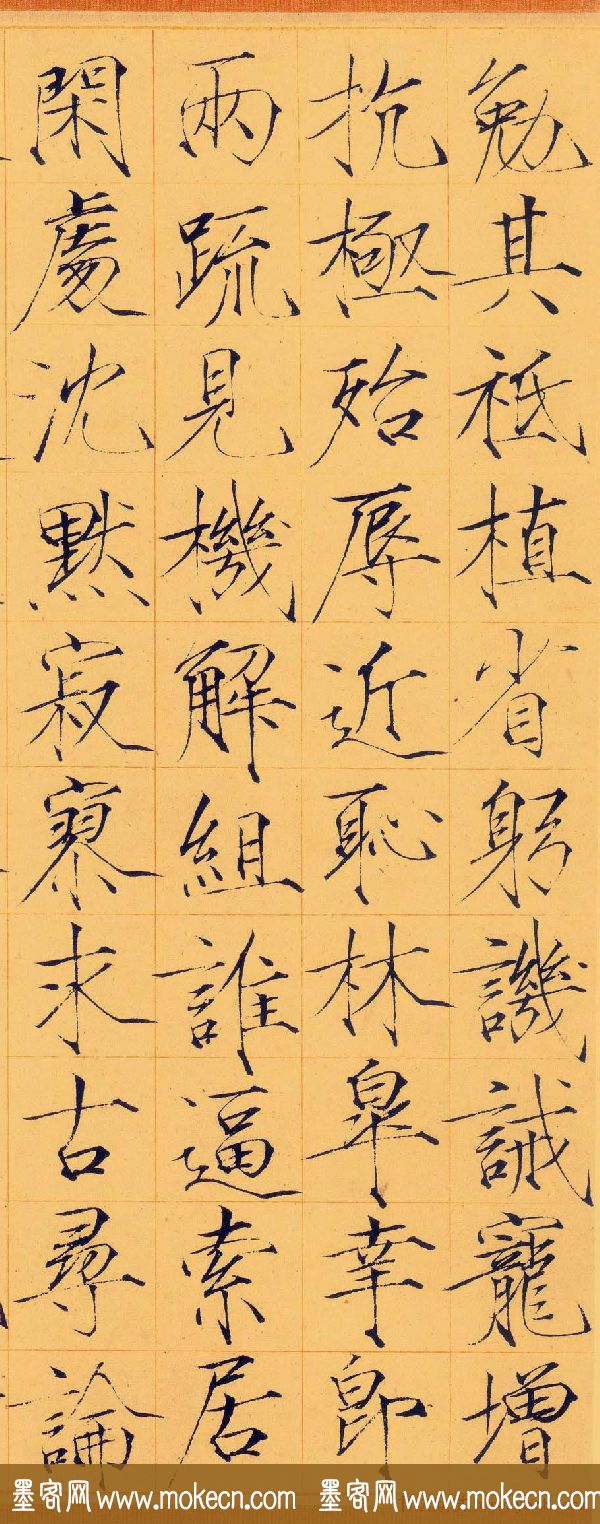 勉其祗植省躬譏誡寵增
抗極殆辱近恥林皋幸即
兩疏見機解組誰逼索居
閑處沈默寂寥求古尋論
墨客网 www.mokecn.com 墨客网 www.mokecn.com